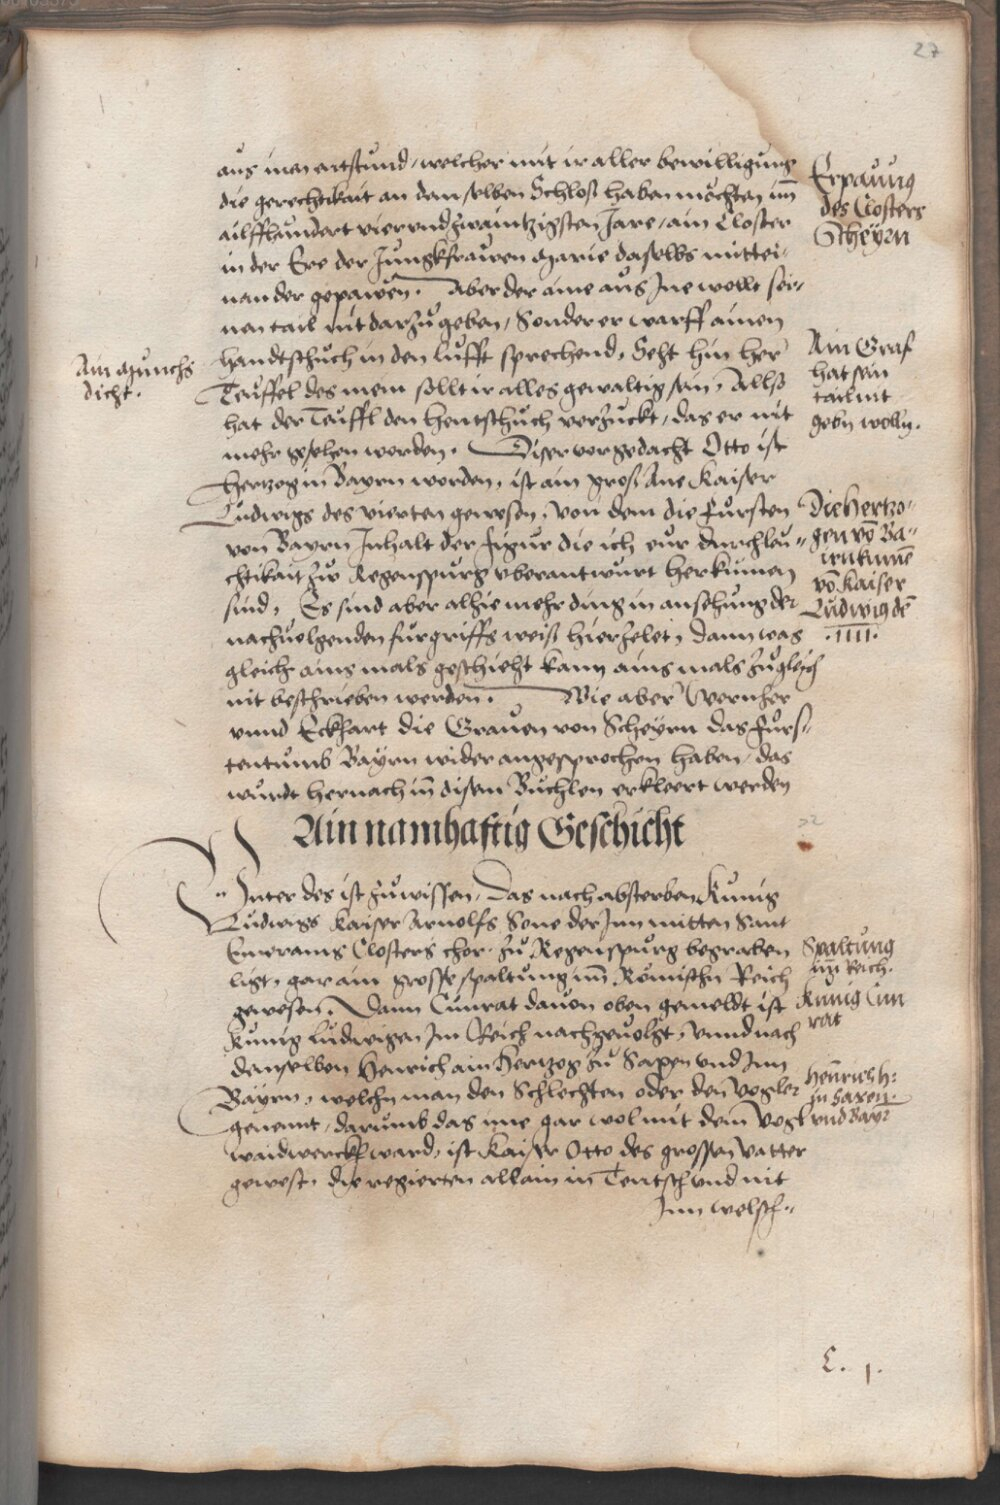 27
aus inen entstund, welcher mit ir aller bewilligung
die gerechtikait an demselben Schloß haben möchten im̄
ailffhundert vierundzwaintzigsten Jare, ain Closter
in der Ere der Jungkfrawen Marie daselbs mittei-
nander gepawen. Aber der aine aus Ine wollt sei-
nen tail nit darzů geben, Sonder er warff ainen
handtschůch in den lufft sprechend, Seht hin her
Teuffel des mein sollt ir alles gewaltig sein, Allso
hat der Teuffl den hentschůch verzuckt, das er nit
mehr gesehen worden. Diser vorgedacht Otto ist
hertzog in Bayrn worden, ist ain gros Ane Kaiser
Ludwigs des vierten gewesen, von dem die Fürsten
von Bayrn Inhalt der figur die ich eur durchleu-
chtikait zů Regenspurg vberantwurt herkumen
sind, Es sind aber alhie mehr ding in ansehung der
nachuolgenden furgriffs weiß hierzelet, dann was
gleich ains mals geschieht kann ains mals zůgleich
nit beschrieben werden. Wie aber Wernher
vnnd Eckhart die Grauen von Scheyrn das Fürs-
tentumb Bayrn wider angesprochen haben, das
wurdt hernach in disem Buchlen erkleert werden
Erpauung
des Closters
Scheyrn
Ain Munchs
dicht.
Ain Graf
hat sein
tail nit
gebn wolln.
Die Hertzo-
gen võ Ba-
irn kumē
võ Kaiser
Ludwig dē
.IIII.
Ain namhafftig Geschicht
Vnter des ist zůwissen, Das nach absterben Kunig
Ludwigs Kaiser Arnolfs Sone der Inn mitten Sant
Emerams Closters chor zů Regenspurg begraben
ligt, gar ain grosse spaltung im̄ Römischn Reich
gewesen. Dann Cunrat dauon oben gemeldt ist
Kunig Ludwigen Im Reich nachgeuolgt, vnnd nach
demselben Henrich ain hertzog zů Saxen vnd Inn
Bayrn, welchn man den Schlechten oder den Vogler
genennt, darumb das ime gar wol mit dem Vogl
waidwerckh ward, ist Kaiser Otto des grossen vatter
gewest, die regierten allain in Teutsch vnd nit
Inn welsch-
Spaltung
im̄ Reich.
Kunig Cun
rat
Henrich h:
in Saxen
vnd Bayr
C. 1.